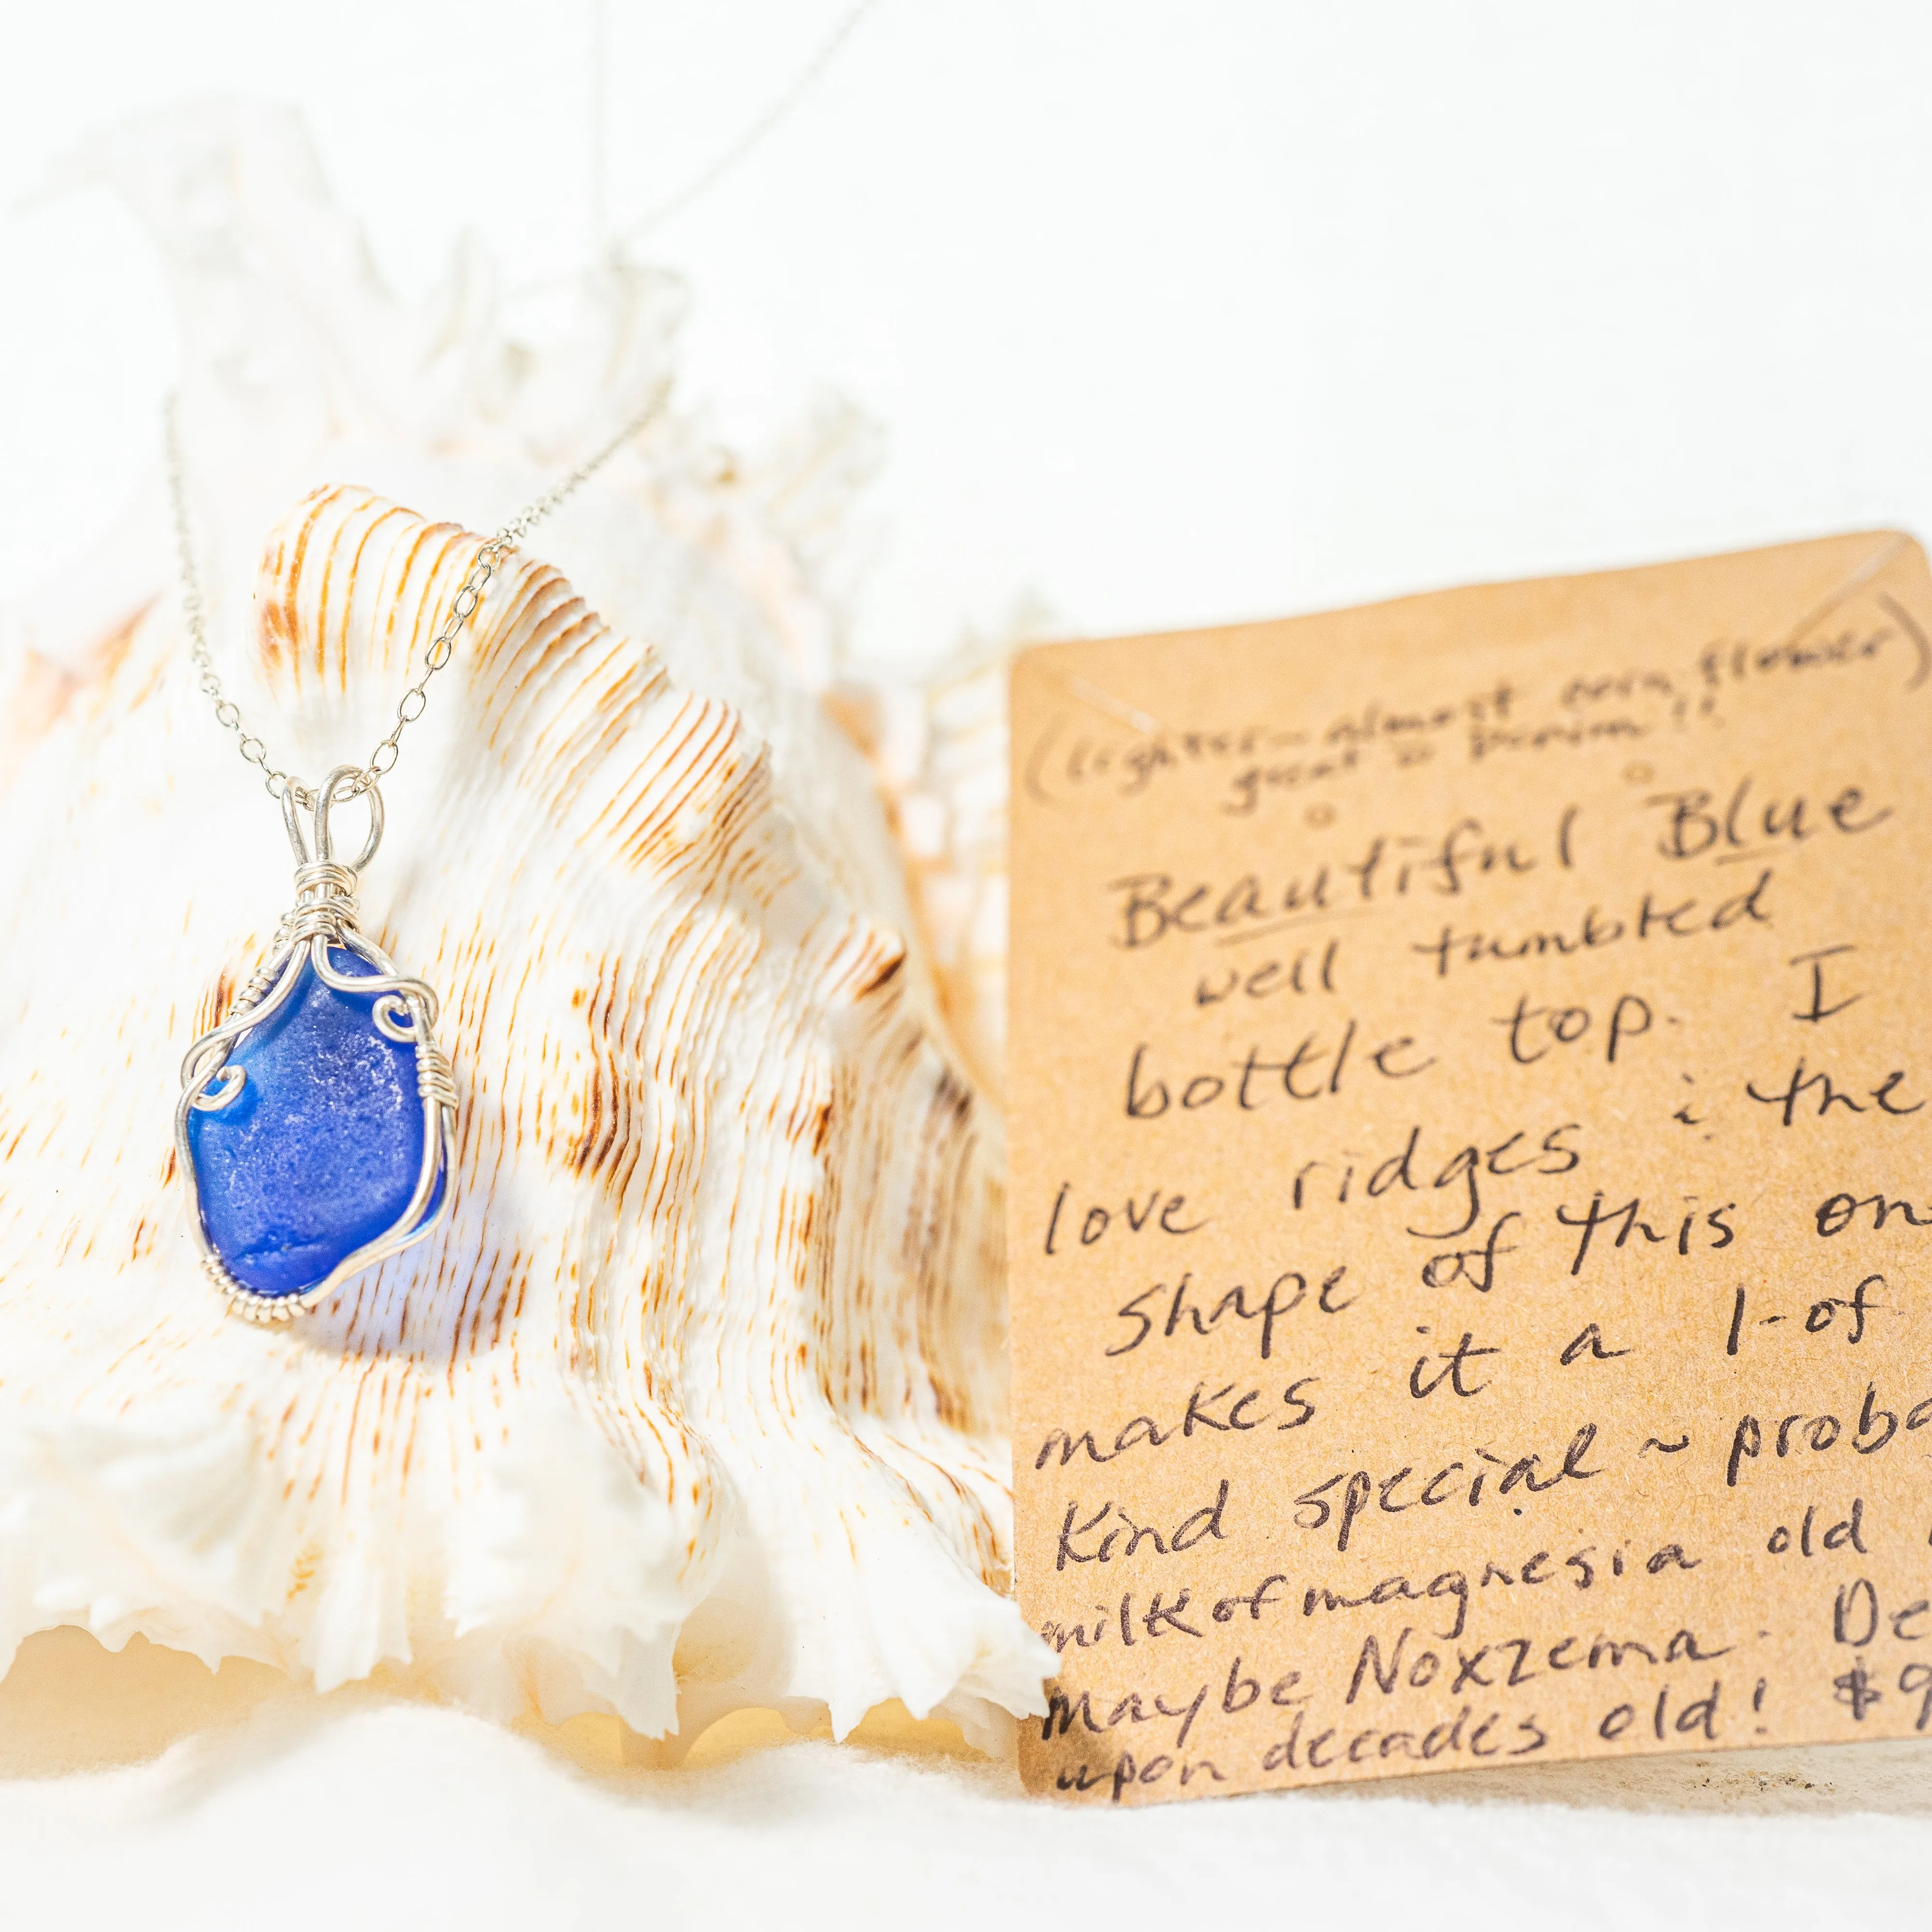 (lighter - almost corn flower)
great w denim!!
Beautiful Blue
well tumbled
bottle top. I
love ridges & the
shape of this on
makes it a 1-of
Kind special ~ proba
milk of magnesia old
maybe Noxzema. De
upon decades old! $9